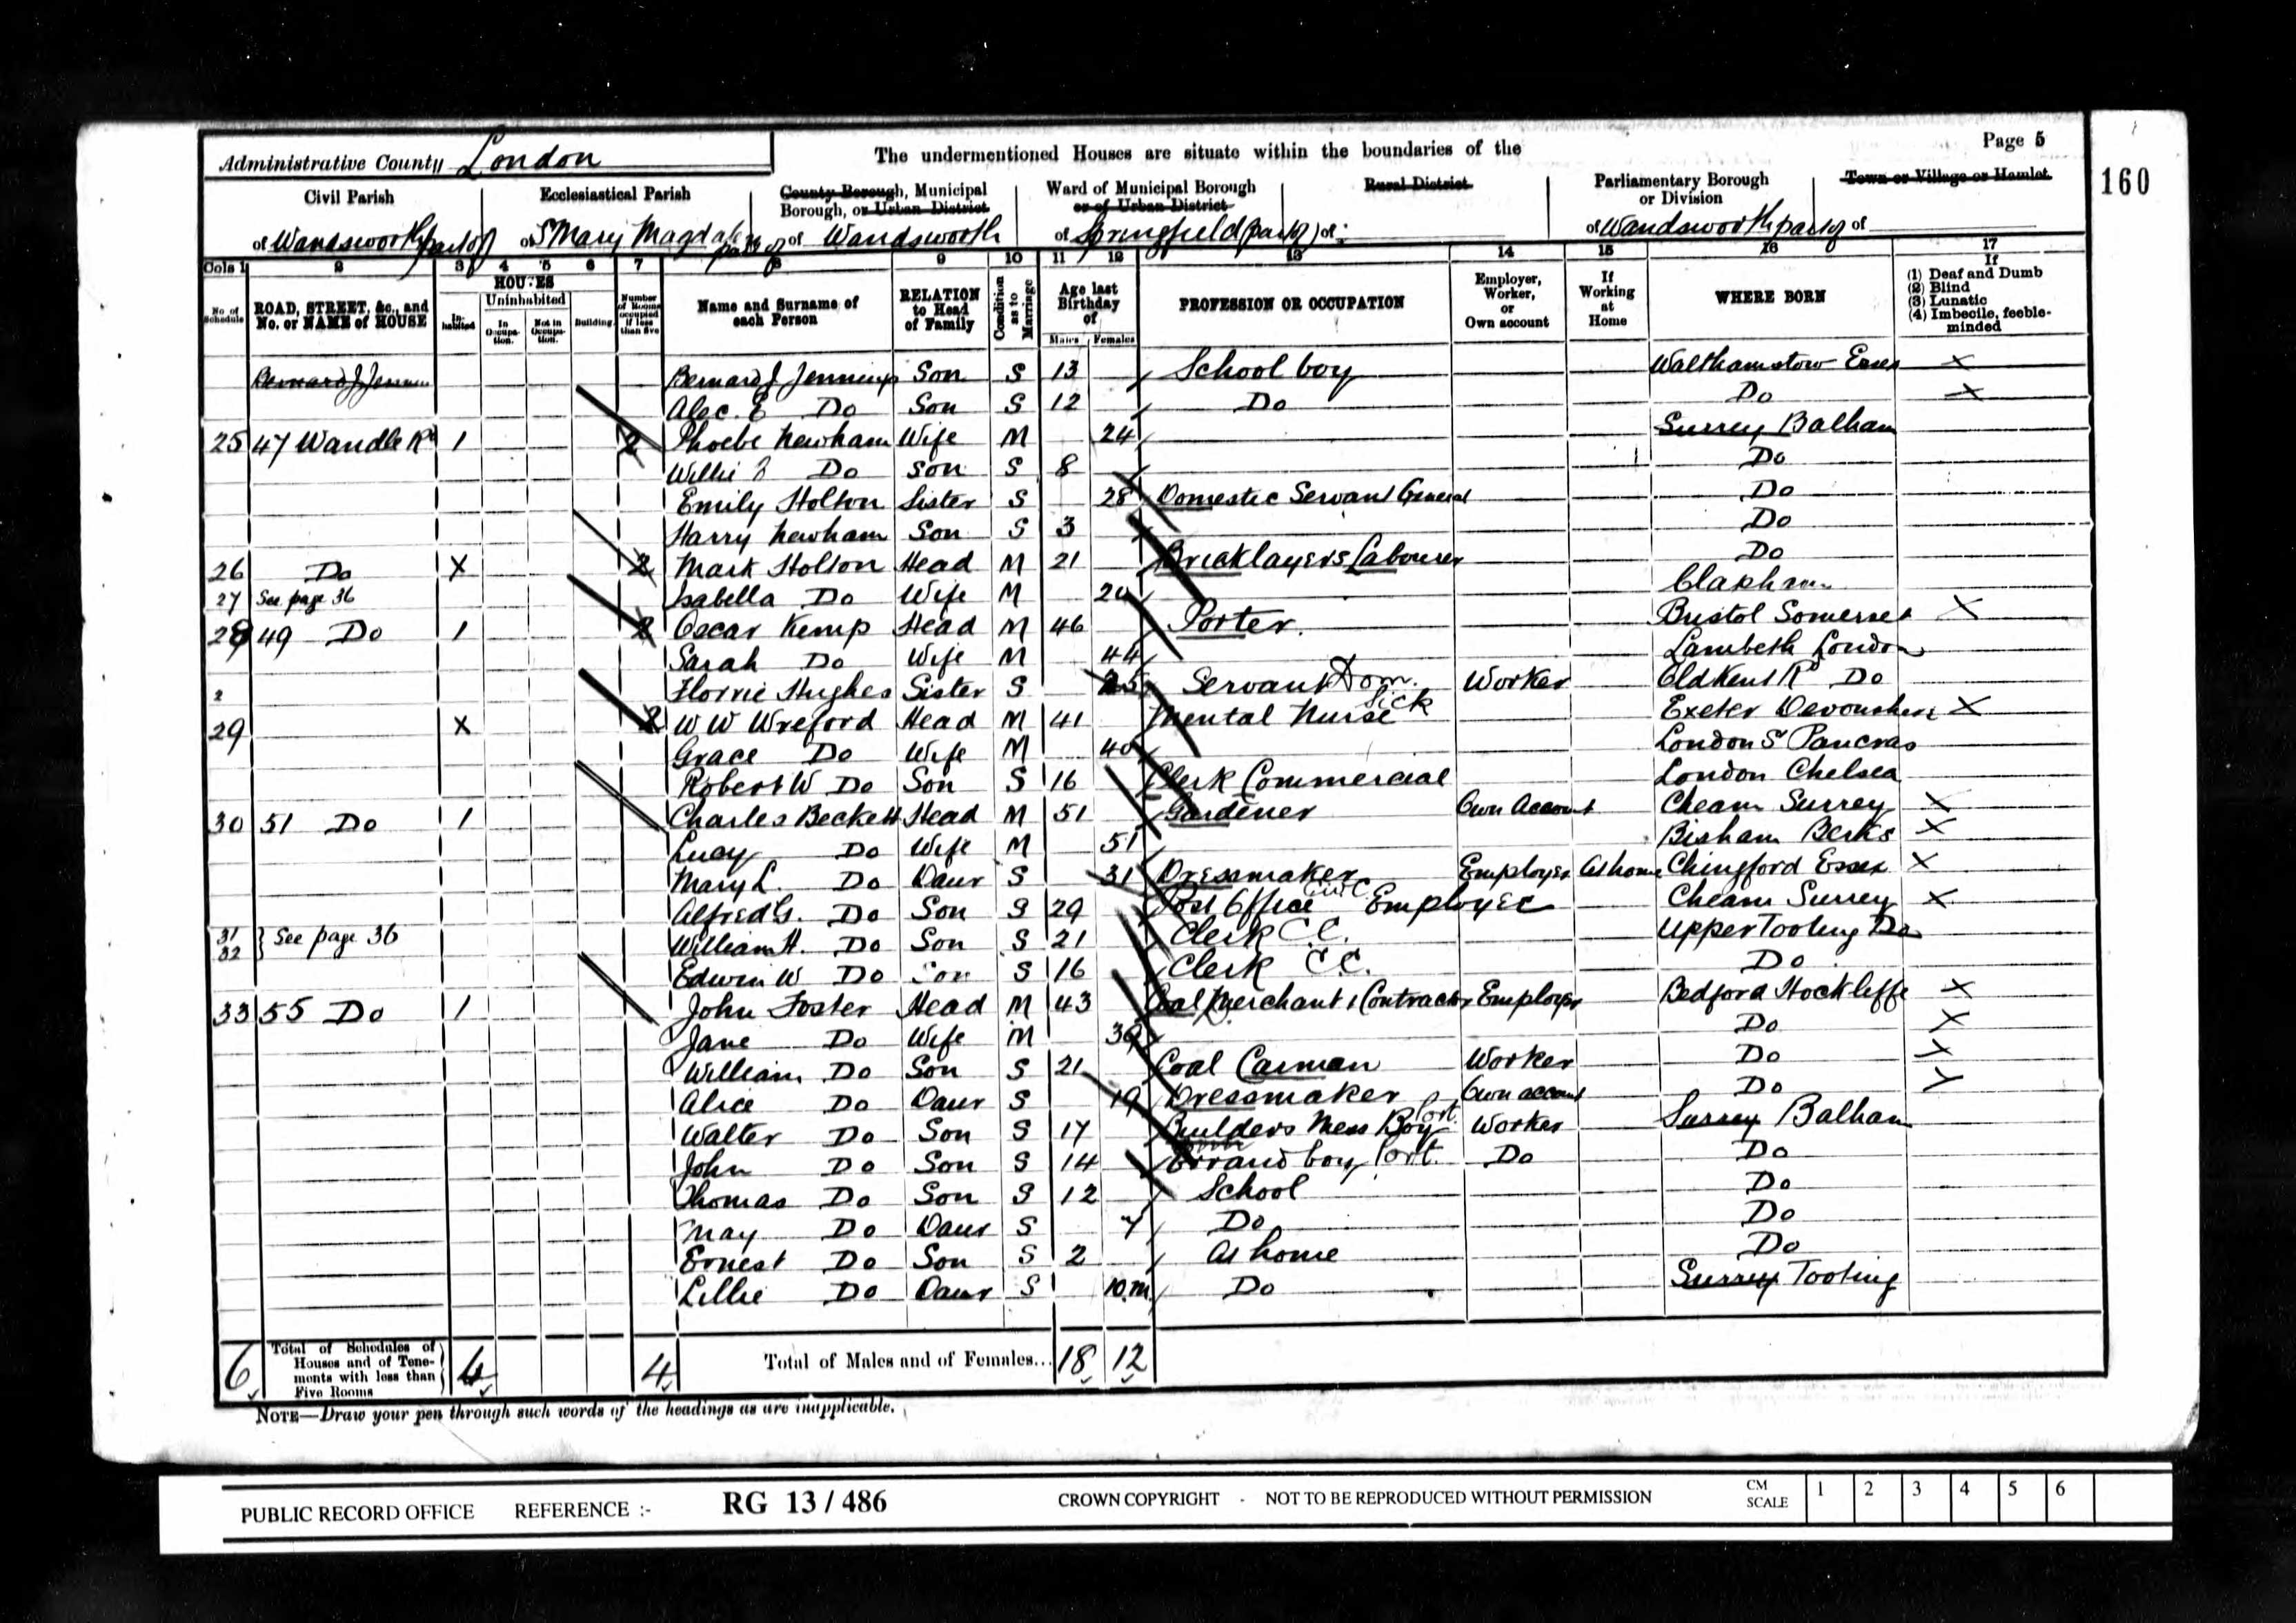 Administrative County London
The undermentioned Houses are situate within the boundaries of the
Page 5
160
Civil Parish
Ecclesiastical Parish
County Borough, Municipal Borough, or Urban District
Ward of Municipal Borough or of Urban District
Rural District
Parliamentary Borough or Division
Town or Village or Hamlet
of Wandsworth part of
of S Mary Magdalen part of
of Wandsworth
of Springfield (part of)
of
of Wandsworth part of
of
Cols 1 2 3 4 5 6 7 8 9 10 11 12 13 14 15 16 17
No of Schedule
ROAD, STREET, &c., and No. or NAME of HOUSE
HOUSES
Inhabited
Uninhabited
In Occupation.
Not in Occupation.
Building.
Number of Rooms occupied if less than five
Name and Surname of each Person
RELATION to Head of Family
Condition as to Marriage
Age last Birthday of
Males Females
PROFESSION OR OCCUPATION
Employer, Worker, or Own account
If Working at Home
WHERE BORN
If
(1) Deaf and Dumb
(2) Blind
(3) Lunatic
(4) Imbecile, feeble-minded
Bernard J Jennings Son S 13 School boy Walthamstow Essex X
Alec. E Do Son S 12 Do Do X
25 47 Wandle Rd 1 2 Phoebe Newham Wife M 24 Surrey Balham
Willie Do Son S 8 Do
Emily Holton Sister S 28 Domestic Servant General Do
Harry Newham Son S 3 Do
26 Do X 2 Mark Holton Head M 21 Bricklayers Labourer Do
27 See page 36 Isabella Do Wife M Clapham
28 49 Do 1 2 Oscar Kemp Head M 46 Porter. Bristol Somerset X
Sarah Do Wife M 44 Lambeth London
2 Florrie Hughes Sister S 25 Servant Dom. Worker Old Kent Rd Do
29 X 2 W W Wreford Head M 41 Mental Nurse Sick Exeter Devonshire X
Grace Do Wife M 40 London S Pancras
Robert W Do Son S 16 Clerk Commercial London Chelsea
30 51 Do 1 Charles Beckett Head M 51 Gardener Own Account Cheam Surrey X
Lucy Do Wife M 51 Bisham Berks X
Mary L. Do Daur S 31 Dressmaker Employer At home Chingford Essex X
Alfred G. Do Son S 29 Post Office Employee Cheam Surrey X
31 32 } See page 36 William H. Do Son S 21 Clerk C.C. Upper Tooting Do
Edwin W Do Son S 16 Clerk C.C. Do
33 55 Do 1 John Foster Head M 43 Coal Merchant & Contractor Employer Bedford Hockliffe X
Jane Do Wife M 39 Do X
William Do Son S 21 Coal Carman Worker Do X
Alice Do Daur S 19 Dressmaker Own account Do X
Walter Do Son S 17 Builders Mess Boy Port Worker Surrey Balham
John Do Son S 14 Errand boy Port. Do Do
Thomas Do Son S 12 School Do
May Do Daur S 7 Do Do
Ernest Do Son S 2 At home Do
Lillie Do Daur S 10 m. Do Surrey Tooting
6 Total of Schedules of Houses and of Tenements with less than Five Rooms 4 4 Total of Males and of Females... 18 12
NOTE—Draw your pen through such words of the headings as are inapplicable.
PUBLIC RECORD OFFICE REFERENCE :- RG 13 / 486 CROWN COPYRIGHT - NOT TO BE REPRODUCED WITHOUT PERMISSION CM SCALE 1 2 3 4 5 6